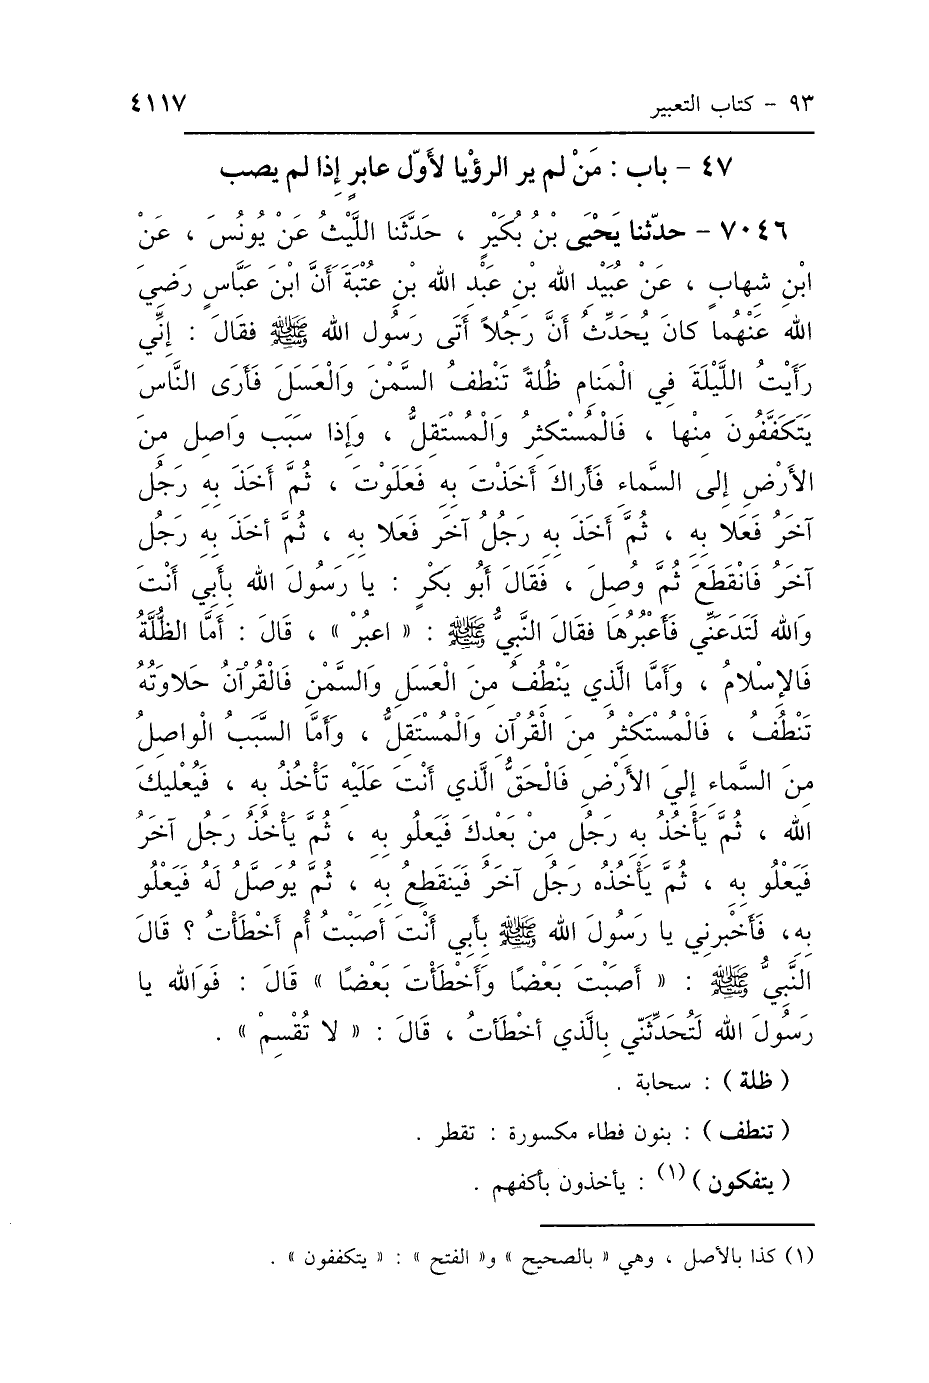 ٩٣ - كتاب التعبير ٤١١٧
٤٧ - باب : مَنْ لم ير الرؤْيا لأَوّل عابرٍ إِذا لم يصب
٧٠٤٦ - حدّثنا يَحْيَى بْنُ بُكَيْرٍ ، حَدَّثَنا اللَّيْثُ عَنْ يُونُسَ ، عَنْ
ابْنِ شِهابٍ ، عَنْ عُبَيْدِ الله بْنِ عَبْدِ الله بْنِ عُتْبَةَ أَنَّ ابْنَ عَبَّاسٍ رَضِيَ
الله عَنْهُما كانَ يُحَدِّثُ أَنَّ رَجُلاً أَتَى رَسُولَ الله ﷺ فقَالَ : إِنِّي
رَأَيْتُ اللَّيْلَةَ فِي الْمَنامِ ظُلةً تَنْطفُ السَّمْنَ وَالْعَسَلَ فَأَرَى النَّاسَ
يَتَكَفَّفُونَ مِنْها ، فَالْمُسْتكثِرُ وَالْمُسْتَقِلُّ ، وَإِذا سَبَب وَاصِل مِنَ
الأَرْضِ إِلى السَّماءِ فَأَراكَ أَخَذْتَ بِهِ فَعَلَوْتَ ، ثُمَّ أَخَذَ بِهِ رَجُلٌ
آخَرُ فَعَلا بِهِ ، ثُمَّ أَخَذَ بِهِ رَجُلٌ آخَر فَعَلا بِهِ ، ثُمَّ أخَذَ بِهِ رَجُلٌ
آخَرُ فَانْقَطَعَ ثُمَّ وُصِلَ ، فَقَالَ أَبُو بَكْرٍ : يا رَسُولَ الله بِأَبِي أَنْتَ
وَالله لَتَدَعَنِّي فَأَعْبُرُهَا فقالَ النَّبِيُّ ﷺ : « اعبُرْ » ، قَالَ : أَمَّا الظُّلَّةُ
فَالإِسْلامُ ، وَأَمَّا الَّذِي يَنْطُفُ مِنَ الْعَسَلِ وَالسَّمْنِ فَالْقُرْآنُ حَلاوَتُهُ
تَنْطُفُ ، فَالْمُسْتَكْثِرُ مِنَ الْقُرْآنِ وَالْمُسْتَقلُّ ، وَأَمَّا السَّبَبُ الْواصِلُ
مِنَ السَّماءِ إِلىَ الأَرْضِ فَالْحَقُّ الَّذي أَنْتَ عَلَيْهِ تَأْخُذُ بِهِ ، فَيُعْلِيكَ
الله ، ثُمَّ يَأْخُذُ بِهِ رَجُل مِنْ بَعْدِكَ فَيَعلُو بِهِ ، ثُمَّ يَأْخُذُ رَجُل آخَرُ
فَيَعْلُو بِهِ ، ثُمَّ يَأْخُذُه رَجُل آخَرُ فَيَنقَطِعُ بِهِ ، ثُمَّ يُوَصَّلُ لَهُ فَيَعْلُو
بِهِ، فَأَخْبِرنِي يا رَسُولَ الله ﷺ بِأَبِي أَنْتَ أصَبْتُ أَم أَخْطَأْتُ ؟ قَالَ
النَّبِيُّ ﷺ : « أَصَبْتَ بَعْضًا وَأَخْطَأْتَ بَعْضًا » قَالَ : فَوَالله يا
رَسُولَ الله لَتُحَدِّثَنّي بِالَّذي أخْطَأتُ ، قَالَ : « لا تُقْسِمْ » .
( ظلة ) : سحابة .
( تنطف ) : بنون فطاء مكسورة : تقطر .
( يتفكون )(١) : يأخذون بأكفهم .
(١) كذا بالأصل ، وهي « بالصحيح » و« الفتح » : « يتكففون » .